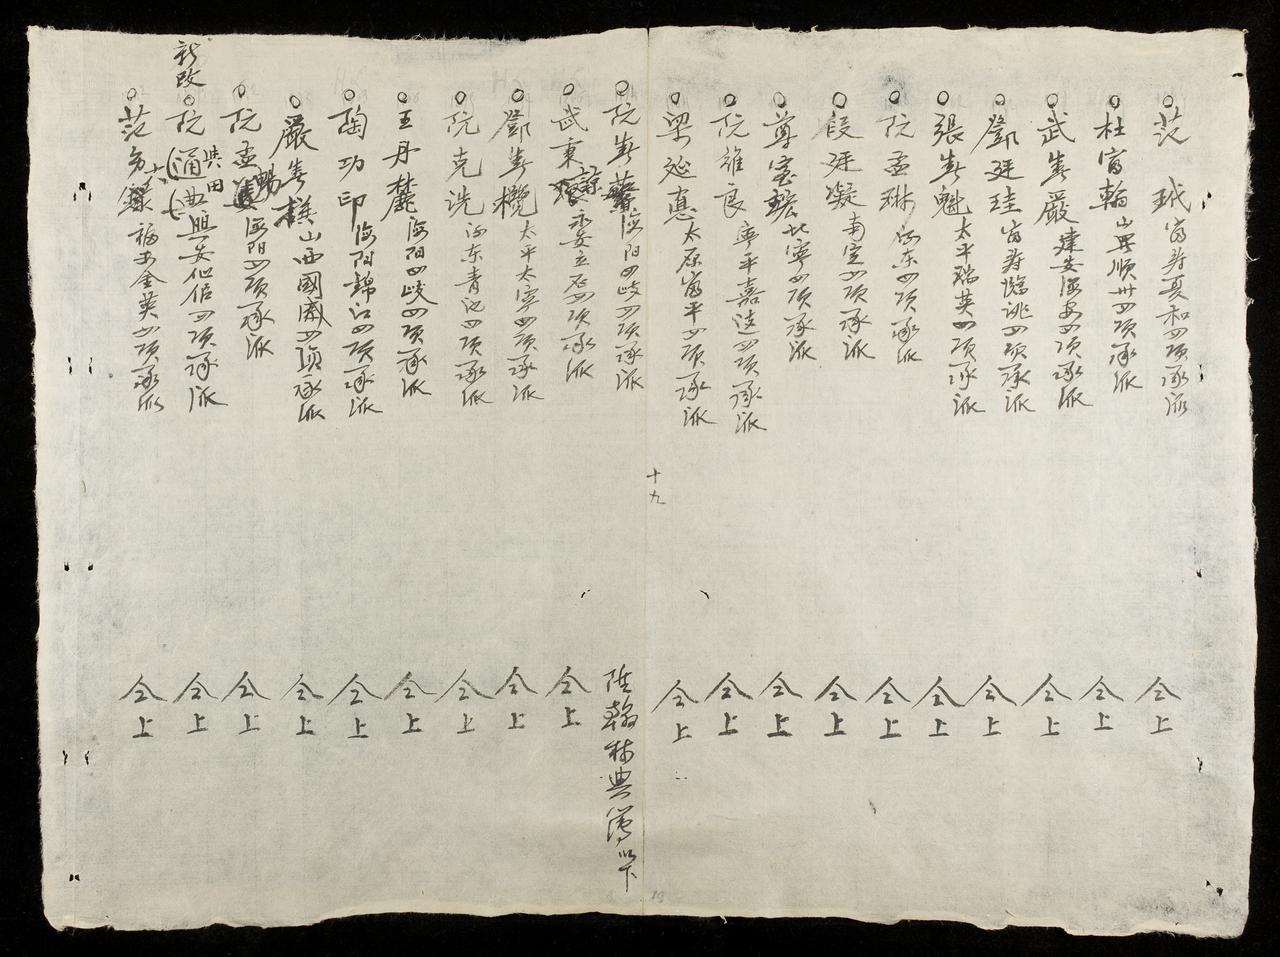 范 珹富寿夏和四項承派 仝上
杜富輪山畀順卅四項承派 仝上
武春嚴建安海安四項承派 仝上
鄧廷珪富寿臨洮四項承派 仝上
張春魁太平瑞英四項承派 仝上
阮孟琳海东四項承派 仝上
段廷凝南定四項承派 仝上
尊室 北寧四項承派 仝上
阮維良寧平嘉遠四項承派 仝上
梁延惠太原富平四項承派 仝上
十九
阮春 海阳四岐四項承派 陞翰林典簿以下
武東 諒永安立石四項承派 仝上
鄧春欖太平太寧四項承派 仝上
阮克洗海东青池四項承派 仝上
王丹麓海阳四岐四項承派 仝上
陶功印海阳錦江四項承派 仝上
嚴春 山西國威四項承派 仝上
阮孟 暢海阳四項承派 仝上
新改
阮(通典)興安仙侣四項承派 仝上
其田
范 福安金英四項承派 仝上
19